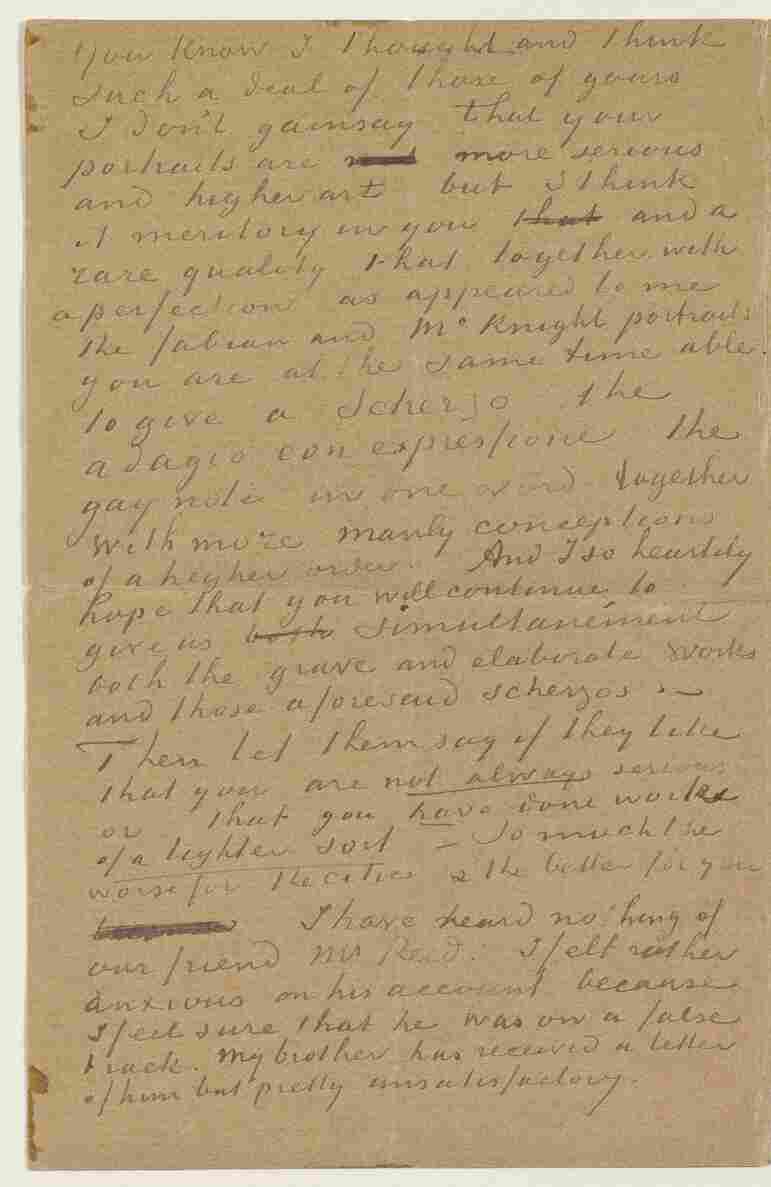 You know I thought and think
such a deal of those of yours
I don't gainsay that your
portraits are more serious
and higher art but I think
it meritory in you that and a
rare quality that together with
a perfection as appeared to me
the fabian and McKnight portraits
you are at the same time able
to give a Scherzo the
adagio con expressione the
gay note in one word together
with more manly conceptions
of a higher order. And I so heartily
hope that you will continue to
give us both simultanément
both the grave and elaborate works
and those aforesaid scherzos. –
Then let them say if they like
that you are not always serious
or that you have done works
of a lighter sort – So much the
worse for the critic & the better for you
I have heard nothing of
our friend Mr Reid. I felt rather
anxious on his account because
I feel sure that he was on a false
track. My brother has received a letter
of him but pretty unsatisfactory.